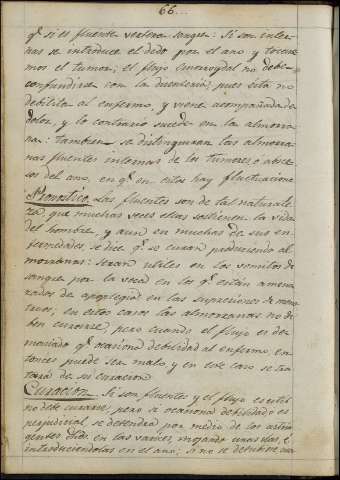 66...
q.e si es fluente vertera sangre: Si son inter-
nas se introduce el dedo por el ano y tocare
mos el tumor; el flujo emoroydal no debe
confundirse con la disenteria, pues esta no
debilita al enfermo, y viene acompañada de
dolor, y lo contrario sucede en la almorra
na: tambien se distinguiran las almorra
nas fluentes internas de los tumores o abce-
sos del ano, en q.e en estos hay fluctuacion.
Pronostico. Las fluentes son de tal naturale
za que muchas veces ellas sostienen la vida
del hombre, y aun en muchas de sus en-
fermedades, se dice q.e se curan produciendo al
morranas: seran utiles en los vomitos de
sangre por la voca en los q.e están amena
zados de apoplegia en las supresiones de mens
truos; en estos casos las almorranas no de
ben curarse, pero cuando el flujo es de-
masiado q.e ocasiona debilidad al enfermo, en-
tonces puede ser malo y en este caso se tra
tará de su curacion
Curacion. Si son fluentes y el flujo es util
no debe curarse, pero si ocasiona debilidad o es
perjudicial, se detendrá por medio de los astrin
gentes en las mojando unas ilas, é
introduciendolas en el ano; si no se detubiere con